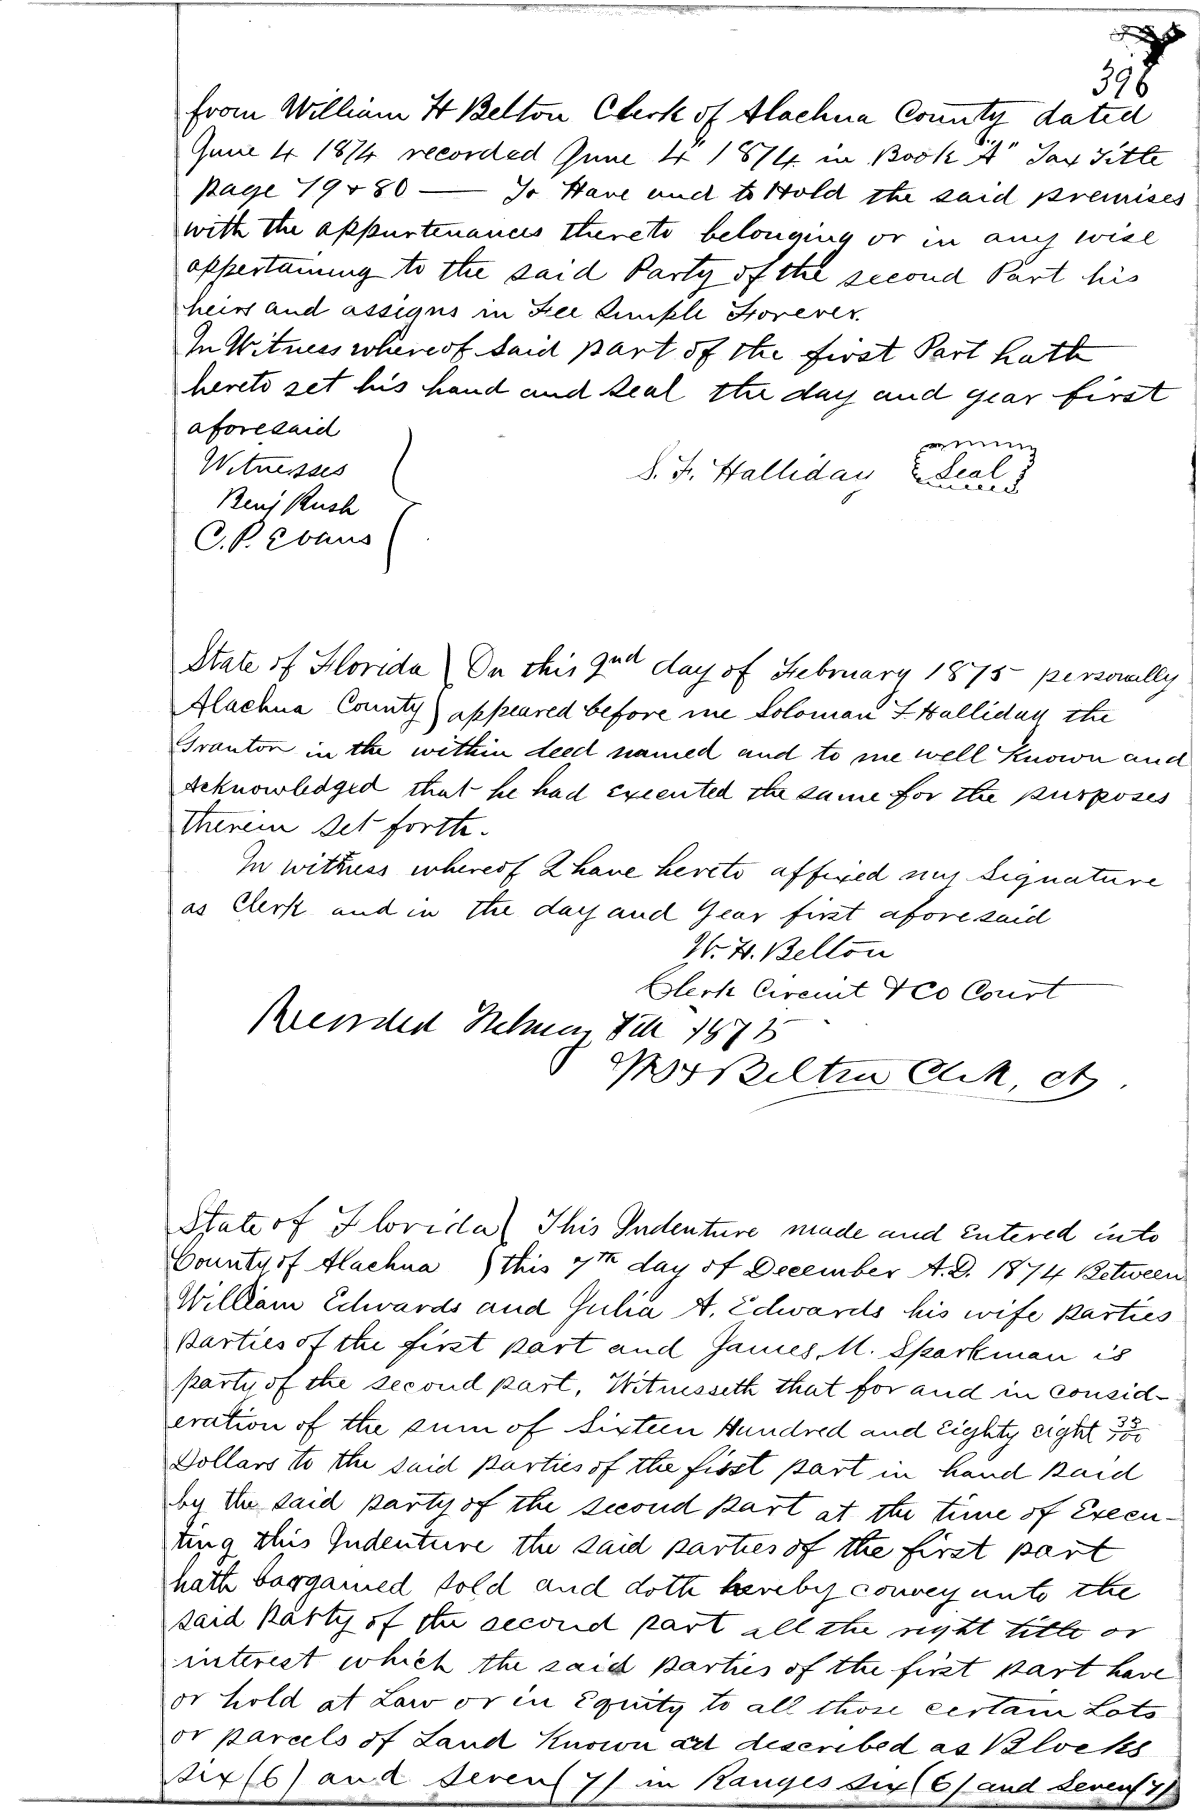 396
from William H Belton Clerk of Alachua County dated
June 4 1874 recorded June 4" 1874 in Book "A" Tax Title
page 79 & 80 — To Have and to Hold the said premises
with the appurtenances thereto belonging or in any wise
appertaining to the said Party of the second Part his
heirs and assigns in Fee Simple Forever.
In Witness whereof Said part of the first Part hath
hereto set his hand and Seal the day and year first
aforesaid
Witnesses
S. F. Halliday Seal
Benj Rush
C. P. Evans
State of Florida } On this 2nd day of February 1875 personally
Alachua County } appeared before me Soloman F Halliday the
Grantor in the within deed named and to me well Known and
Acknowledged that he had executed the same for the purposes
therein set forth.
In witness whereof I have hereto affixed my Signature
as Clerk and in the day and Year first aforesaid
W. H. Belton
Clerk Circuit & Co Court
Recorded February 8th 1875
WH Belton Clerk,
State of Florida } This Indenture made and Entered into
County of Alachua } this 7th day of December A.D. 1874 Between
William Edwards and Julia A. Edwards his wife parties
parties of the first part and James M. Sparkman is
party of the second part, Witnesseth that for and in consid-
eration of the sum of Sixteen Hundred and Eighty eight 33/100
Dollars to the said parties of the first part in hand paid
by the said party of the second part at the time of Execu-
ting this Indenture the said parties of the first part
hath bargained sold and doth hereby convey unto the
said Party of the second part all the right title or
interest which the said parties of the first part have
or hold at Law or in Equity to all those certain Lots
or parcels of Land Known ad described as Blocks
six (6) and Seven (7) in Ranges six (6) and Seven (7)